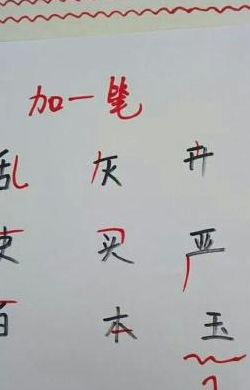 加一笔
乱 灰 卉
吏 买 严
百 本 玉